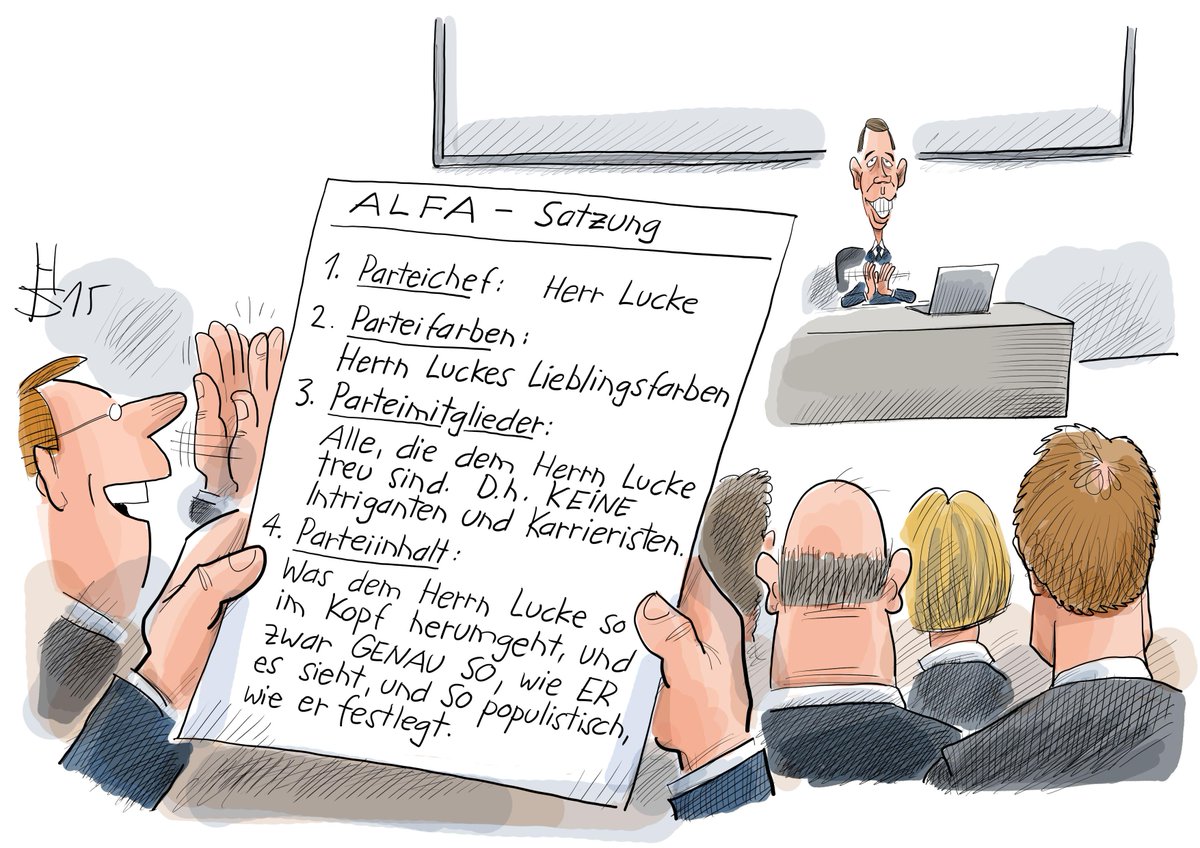 ALFA - Satzung
1. Parteichef: Herr Lucke
2. Parteifarben:
Herrn Luckes Lieblingsfarben
3. Parteimitglieder:
Alle, die dem Herrn Lucke
treu sind. D.h. KEINE
Intriganten und Karrieristen.
4. Parteiinhalt:
Was dem Herrn Lucke so
im Kopf herumgeht, und
zwar GENAU SO, wie ER
es sieht, und so populistisch,
wie er festlegt.
15